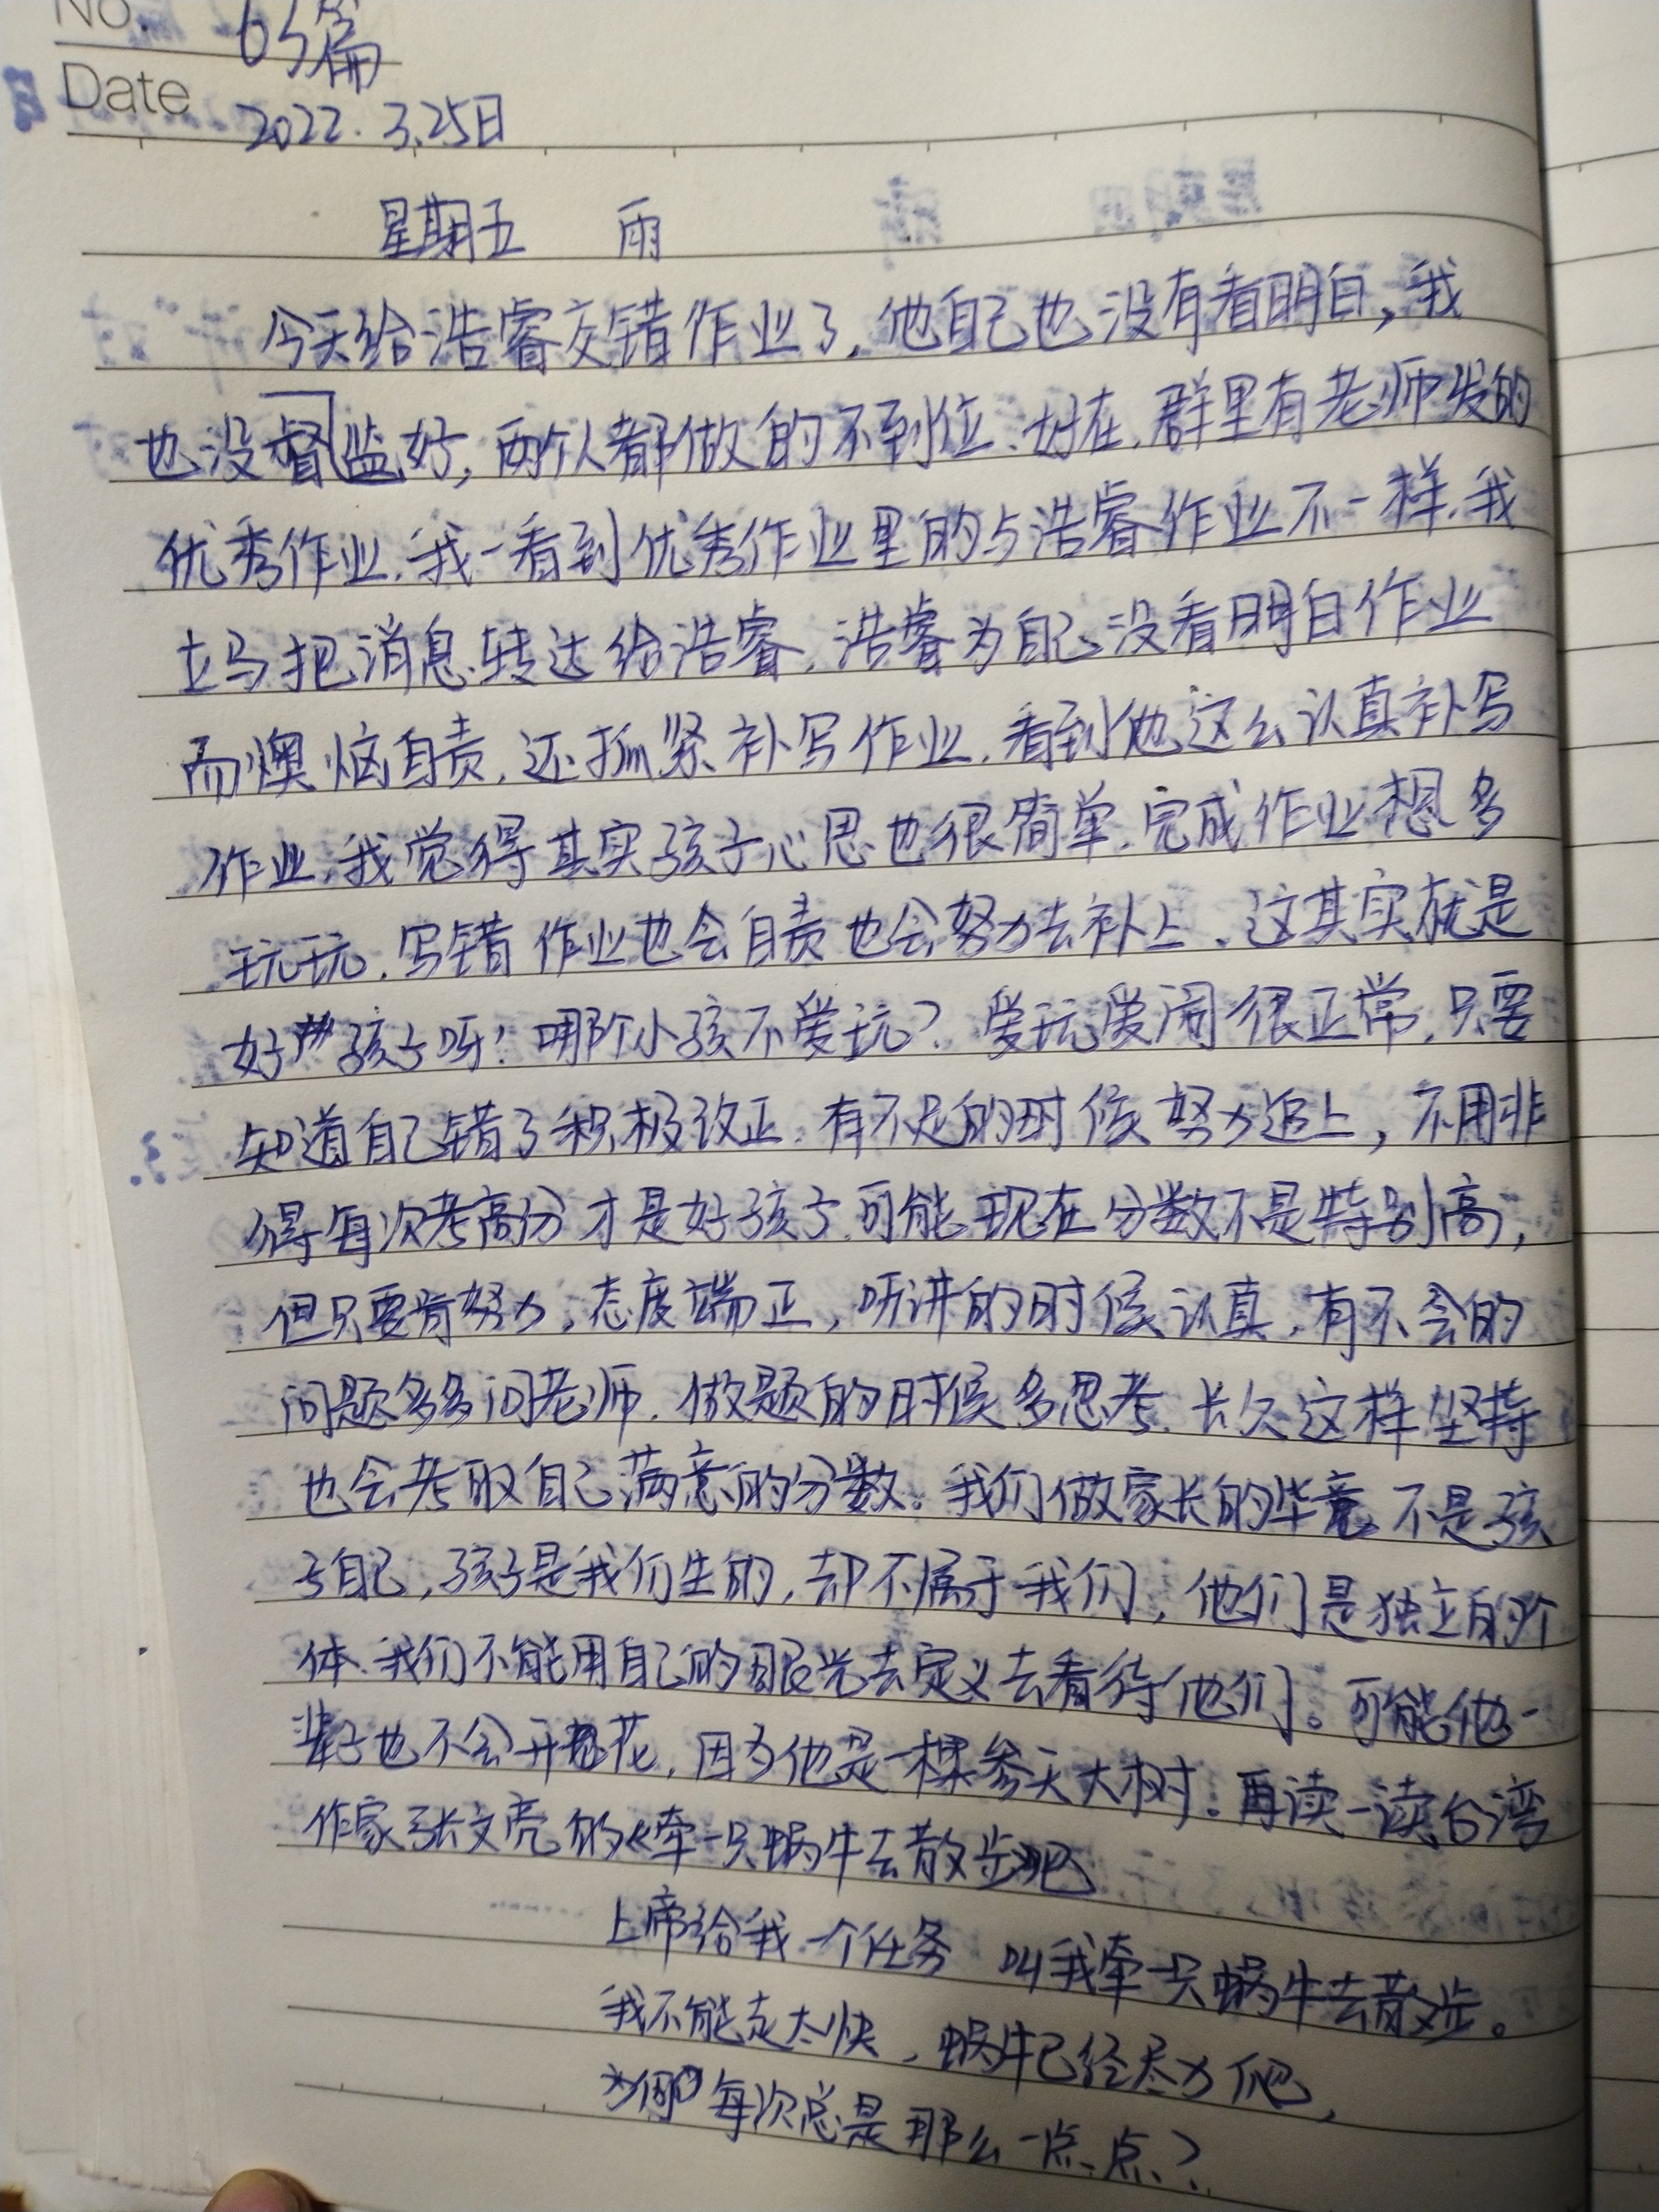 No. 65篇
Date 2022.3.25日
星期五 雨
今天给浩睿交错作业了，他自己也没有看明白，我
也没督监好，两个人都做的不到位、好在，群里有老师发的
优秀作业，我一看到优秀作业里的与浩睿作业不一样，我
立马把消息转达给浩睿，浩睿为自己没看明白作业
而懊恼自责，还抓紧补写作业，看到他这么认真补写
作业，我觉得其实孩子心思也很简单，完成作业想多
玩玩，写错作业也会自责也会努力去补上，这其实就是
好孩子呀！哪个小孩不爱玩？爱玩爱闹很正常，只要
知道自己错了积极改正，有不足的时候努力追上，不用非
得每次考高分才是好孩子，可能现在分数不是特别高，
但只要肯努力，态度端正，听讲的时候认真，有不会的
问题多多问老师，做题的时候多思考，长久这样坚持
也会考取自己满意的分数。我们做家长的毕竟不是孩
子自己，孩子是我们生的，却不属于我们，他们是独立的个
体，我们不能用自己的眼光去定义去看待他们。可能他一
辈子也不会开花，因为他是一棵参天大树。再读一读台湾
作家张文亮的《牵一只蜗牛去散步》吧
上帝给我一个任务 叫我牵一只蜗牛去散步。
我不能走太快，蜗牛已经尽力爬，
为何每次总是那么一点点？